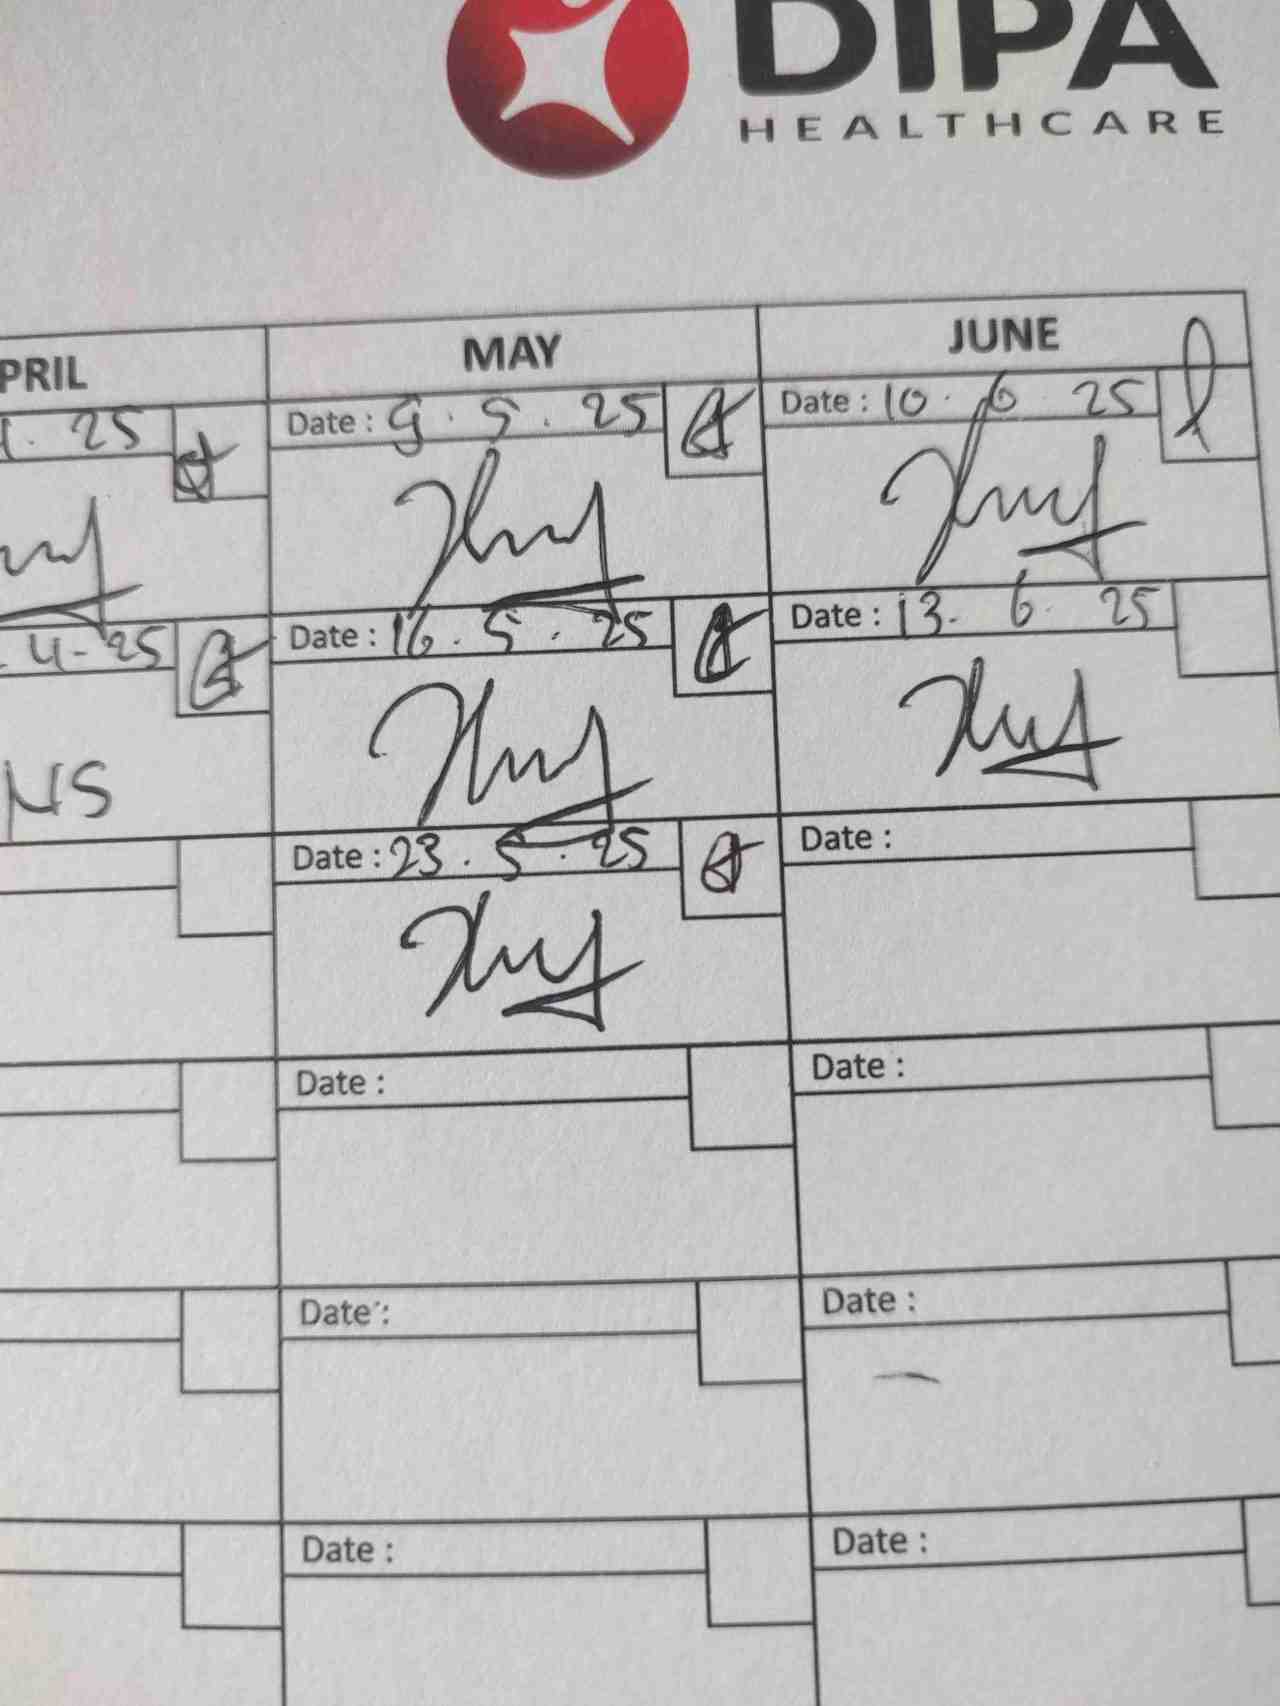 DIPA
HEALTHCARE
PRIL
MAY
JUNE
25
Date : 9 . 5 . 25
Date : 10 . 6 25
4-25
Date : 16 . 5 . 25
Date : 13. 6. 25
NS
Date : 23 . 5 . 25
Date :
Date :
Date :
Date :
Date :
Date :
Date :